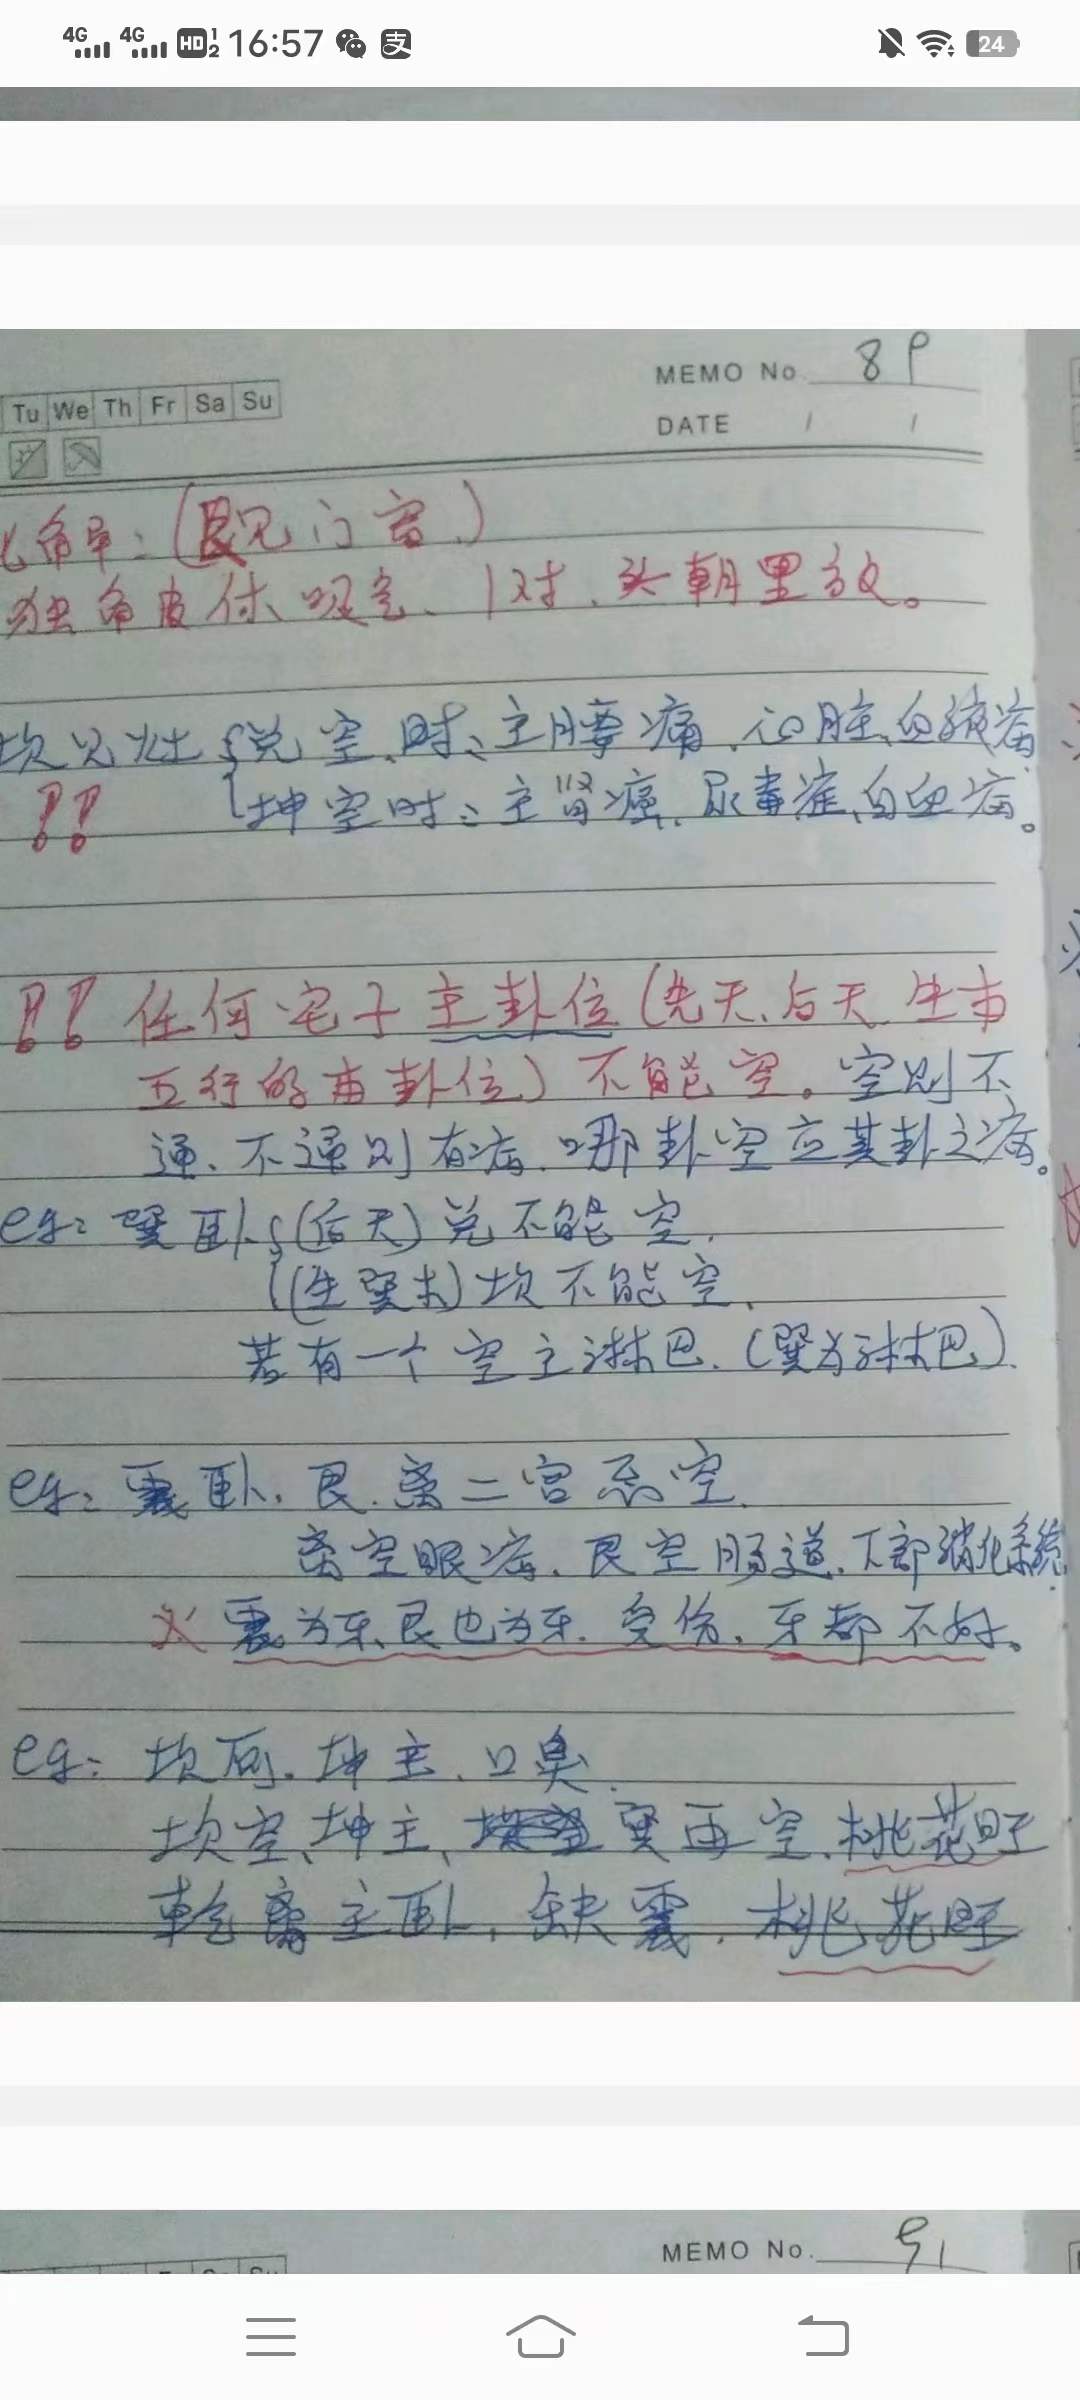 4G 4G HD 1 2 16:57 支 24
MEMO No. 89
Tu We Th Fr Sa Su
DATE / /
(艮见门窗)
1对、头朝里放。
坎见灶 兑空时、主腰痛、心脏、血液病
!! 坤空时:主肾癌、尿毒症、白血病。
!! 任何宅子主卦位(先天、后天、生本
五行的本卦位)不能空。空则不
通、不通则有病、哪卦空应其卦之病。
eg: 巽卧 (后天)兑不能空.
(生巽木)坎不能空、
若有一个空主淋巴.(巽为淋巴).
eg: 震卧、艮、离二宫忌空.
离空眼病、艮空肠道、下部消化系统.
震为牙、艮也为牙.受伤、牙都不好。
eg: 坎厕、坤主、口臭.
坎空、坤主、巽再空、桃花旺
乾 主卧、缺震、桃花旺
MEMO No. 91